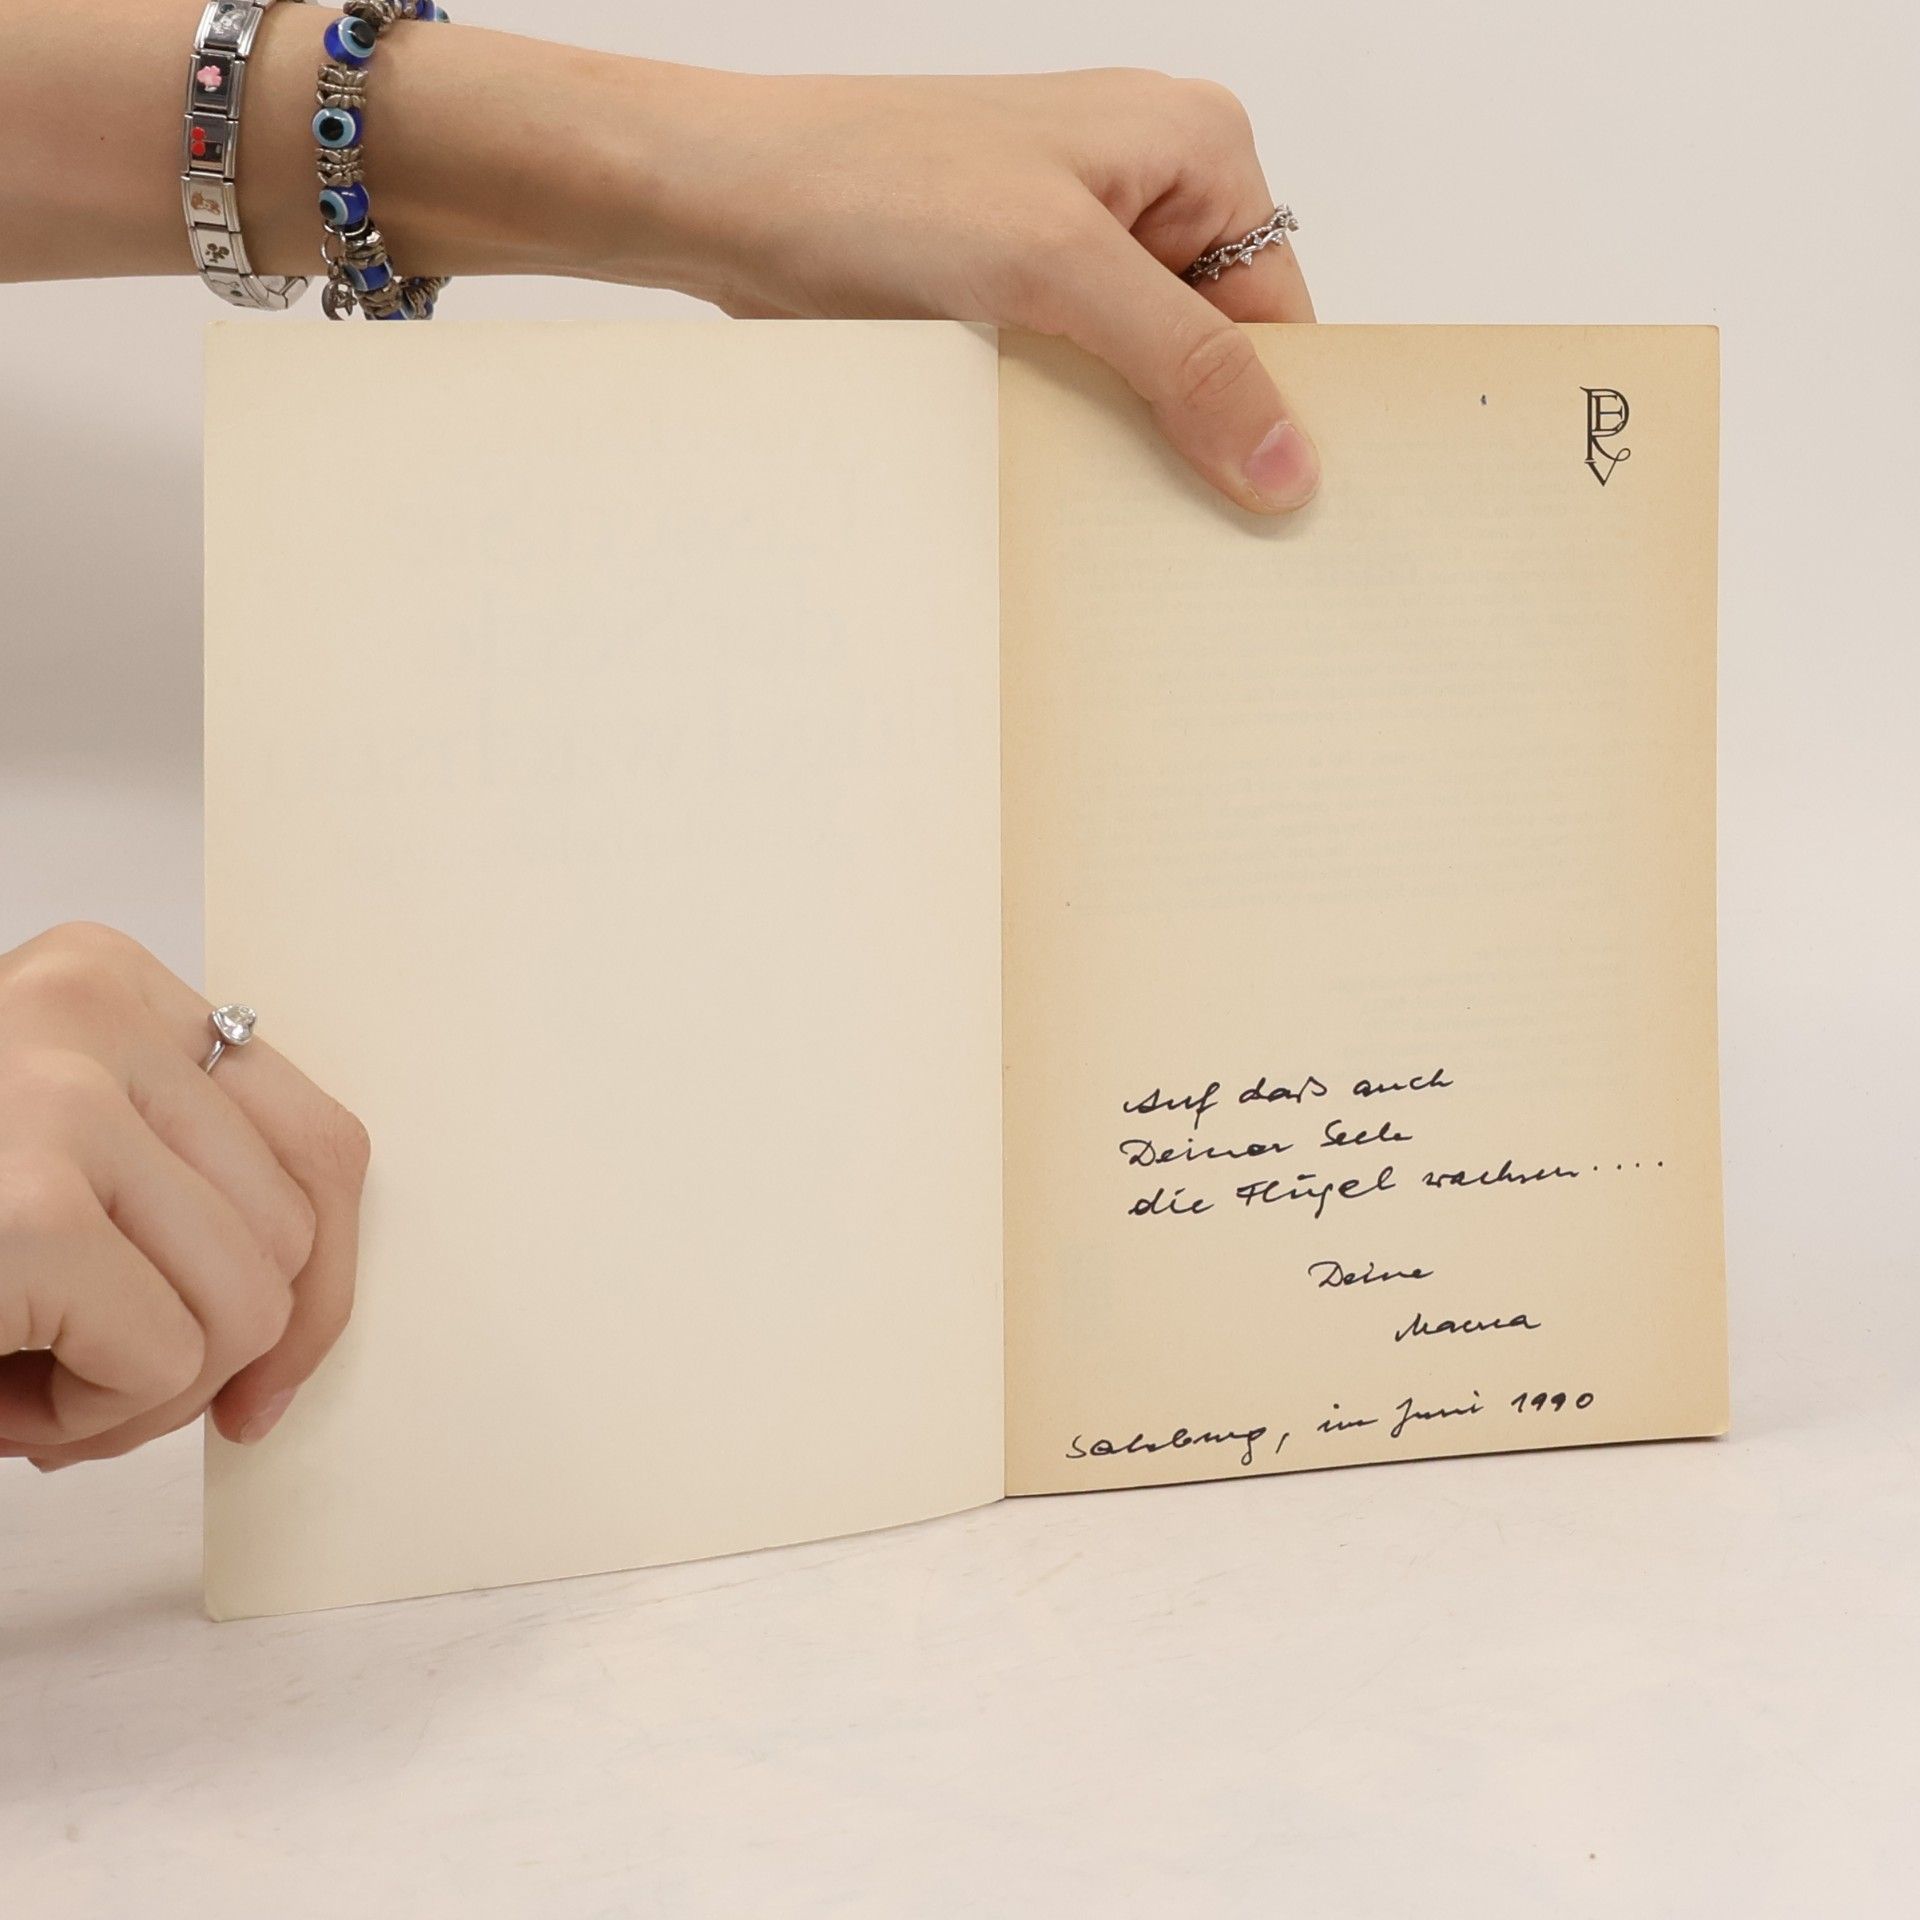 PERV
Auf daß auch
Deiner Seele
die Flügel wachsen....
Deine
Mama
Salzburg, im Juni 1990